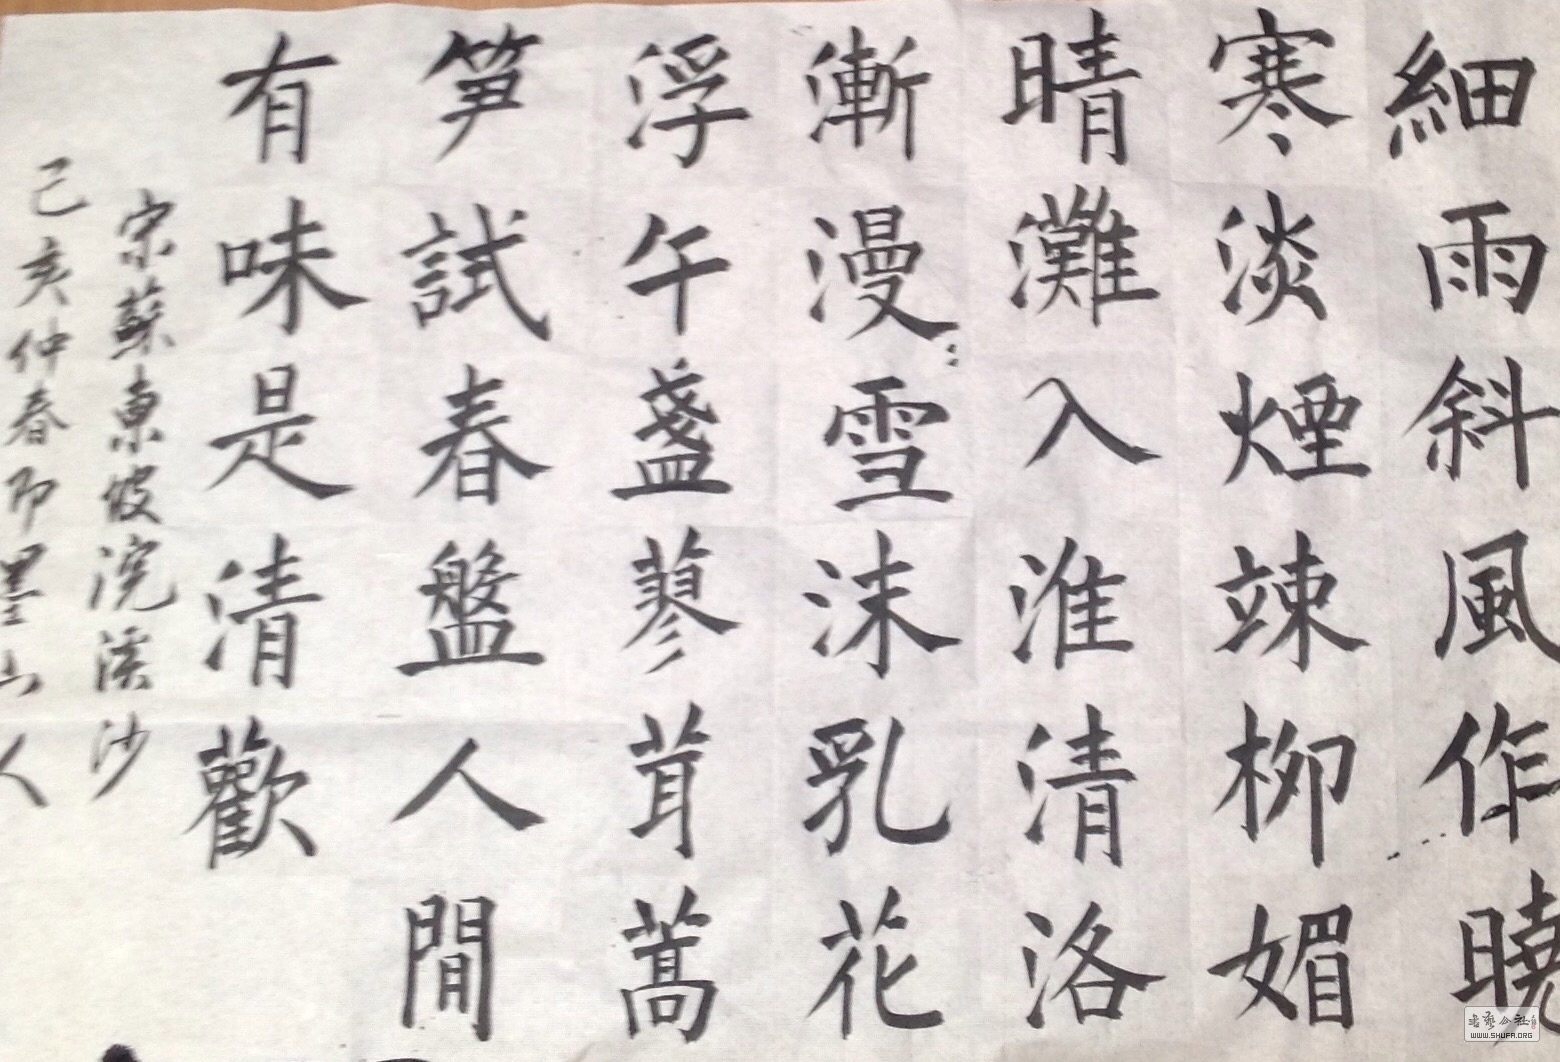 細雨斜風作曉
寒淡煙竦柳媚
晴灘入淮清洛
漸漫〻雪沫乳花
浮午盞蓼茸蒿
笋試春盤人間
有味是清歡
宋蘇東坡浣溪沙
己亥仲春即墨山人
书藝公社
WWW.SHUFA.ORG